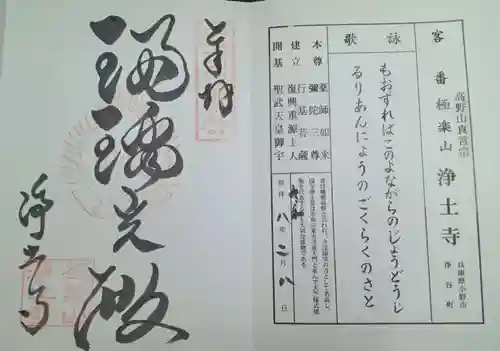 奉拝
瑠璃光殿
浄土寺
客番
高野山真言宗
極楽山
浄土寺
兵庫県小野市
浄谷町
詠歌
もおすればこのよながらのじょうどうじ
るりあんにょうのごくらくのさと
本尊
薬師如来
彌陀三尊
建立
行基菩薩
復興
重源上人
開基
聖武天皇御宇
八年二月八日